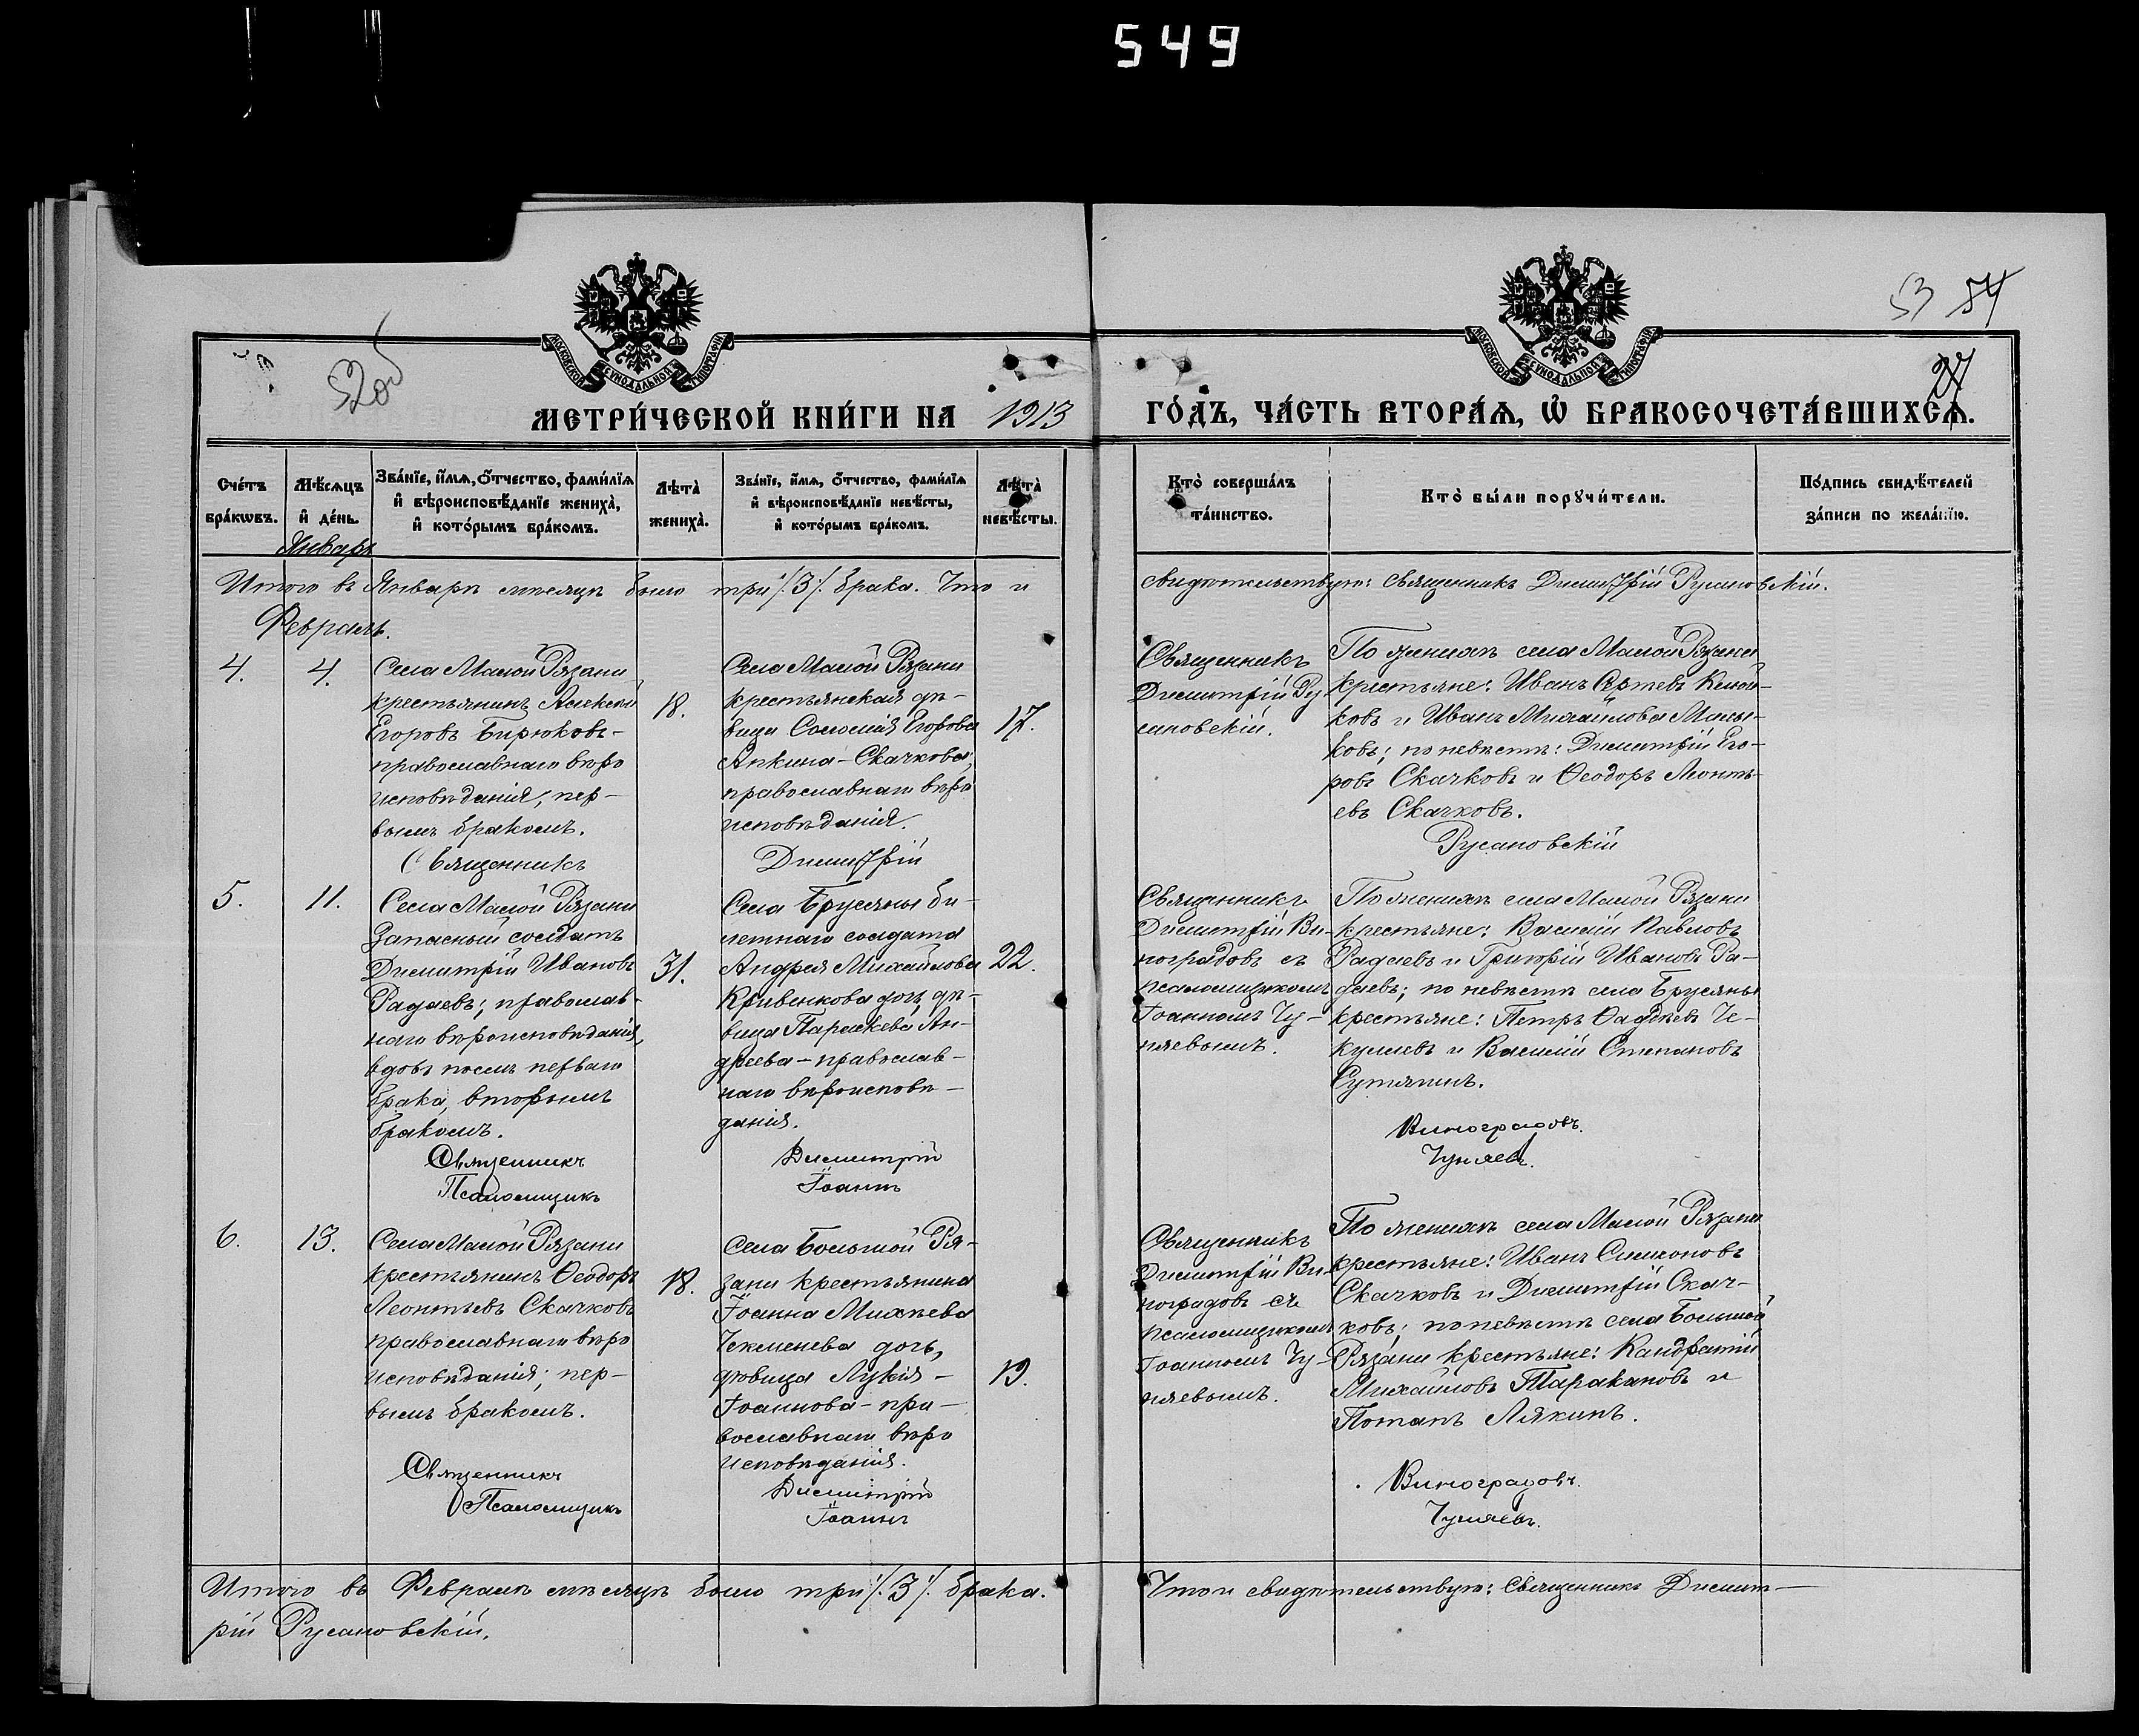 549
53 54
52об
27
МЕТРИ́ЧЕСКОЙ КНИ́ГИ НА 1913 ГО́ДЪ, ЧА́СТЬ ВТОРА́Ѧ, Ѡ҆ БРАКОСОЧЕТА́ВШИХСѦ.
Сче́тъ
бра́кѡвъ.
Мѣ́сяцъ
и҆ де́нь.
Зва́нїе, и҆́мѧ, ѻ҆́тчество, фами́лїѧ
и҆ вѣроисповѣ́данїе жениха̀,
и҆ кото́рымъ бра́комъ.
Лѣта̀
жениха̀.
Зва́нїе, и҆́мѧ, ѻ҆́тчество, фами́лїѧ
и҆ вѣроисповѣ́данїе невѣ́сты,
и҆ кото́рымъ бра́комъ.
Лѣта̀
невѣ́сты.
Кто̀ соверша́лъ
та́инство.
Кто̀ бы́ли порꙋчи́тели.
По́дпись свидѣ́телей
за́писи по жела́нїю.
Январь
Итого въ Январѣ мѣсяцѣ было три /:3:/ брака. Что и свидѣтельствую: Священникъ Димитрій Русановскій.
Февраль.
4.
4.
Села Малой Рязани
крестьянинъ Алексѣй
Егоровъ Бирюковъ –
православнаго вѣро
исповѣданія, пер–
вымъ бракомъ.
18.
Села Малой Рязани
крестьянская дѣ–
вица Соломія Егорова
Аткина – Скачкова,
православнаго вѣро
исповѣданія.
17.
Священникъ
Димитрій Ру
сановскій.
По женихѣ села Малой Рязани
крестьяне: Иванъ
ковъ и Иванъ Михайловъ
ковъ; по невѣстѣ: Димитрій Его–
ровъ Скачковъ и Ѳеодоръ Леонть–
евъ Скачковъ.
Священникъ Димитрій Русановскій
5.
11.
Села Малой Рязани
Запасный солдатъ
Димитрій Ивановъ
Радаевъ; православ–
наго вѣроисповѣданія,
вдовъ послѣ перваго
брака, вторымъ
бракомъ.
31.
Села Брусяны би–
летнаго солдата
Андрея Михайлова
Кривенкова дочь, дѣ–
вица Параскева Ан–
дреева – православ–
наго вѣроисповѣ–
данія.
22.
Священникъ
Димитрій Ви–
ноградовъ съ
псаломщикомъ
Іоанномъ Чу–
няевымъ.
По женихѣ села Малой Рязани
крестьяне: Василій Павловъ
Радаевъ и Григорій Ивановъ Ра–
даевъ; по невѣстѣ села Брусяны
крестьяне: Петръ Ѳадѣевъ Че–
кулаевъ и Василій Степановъ
Сутягинъ.
Священникъ Димитрій Виноградовъ.
Псаломщикъ Іоаннъ Чуняевъ.
6.
13.
Села Малой Рязани
крестьянинъ Ѳеодоръ
Леонтьевъ Скачковъ
православнаго вѣро
исповѣданія; пер–
вымъ бракомъ.
18.
Села Большой Ря–
зани крестьянина
Іоанна Михѣева
Чекменева дочь,
дѣвица Лукія –
Іоаннова – пра–
вославнаго вѣро
исповѣданія.
19.
Священникъ
Димитрій Ви–
ноградовъ съ
псаломщикомъ
Іоанномъ Чу–
няевымъ.
По женихѣ села Малой Рязани
крестьяне: Иванъ Симоновъ
Скачковъ и Димитрій Скач–
ковъ; по невѣстѣ села Большой
Рязани крестьяне: Кандратій
Михайловъ Таракановъ и
Потапъ Лякинъ.
Священникъ Димитрій Виноградовъ.
Псаломщикъ Іоаннъ Чуняевъ.
Итого въ Февралѣ мѣсяцѣ было три /:3:/ брака. Что и свидѣтельствую: Священникъ Димит–
рій Русановскій.